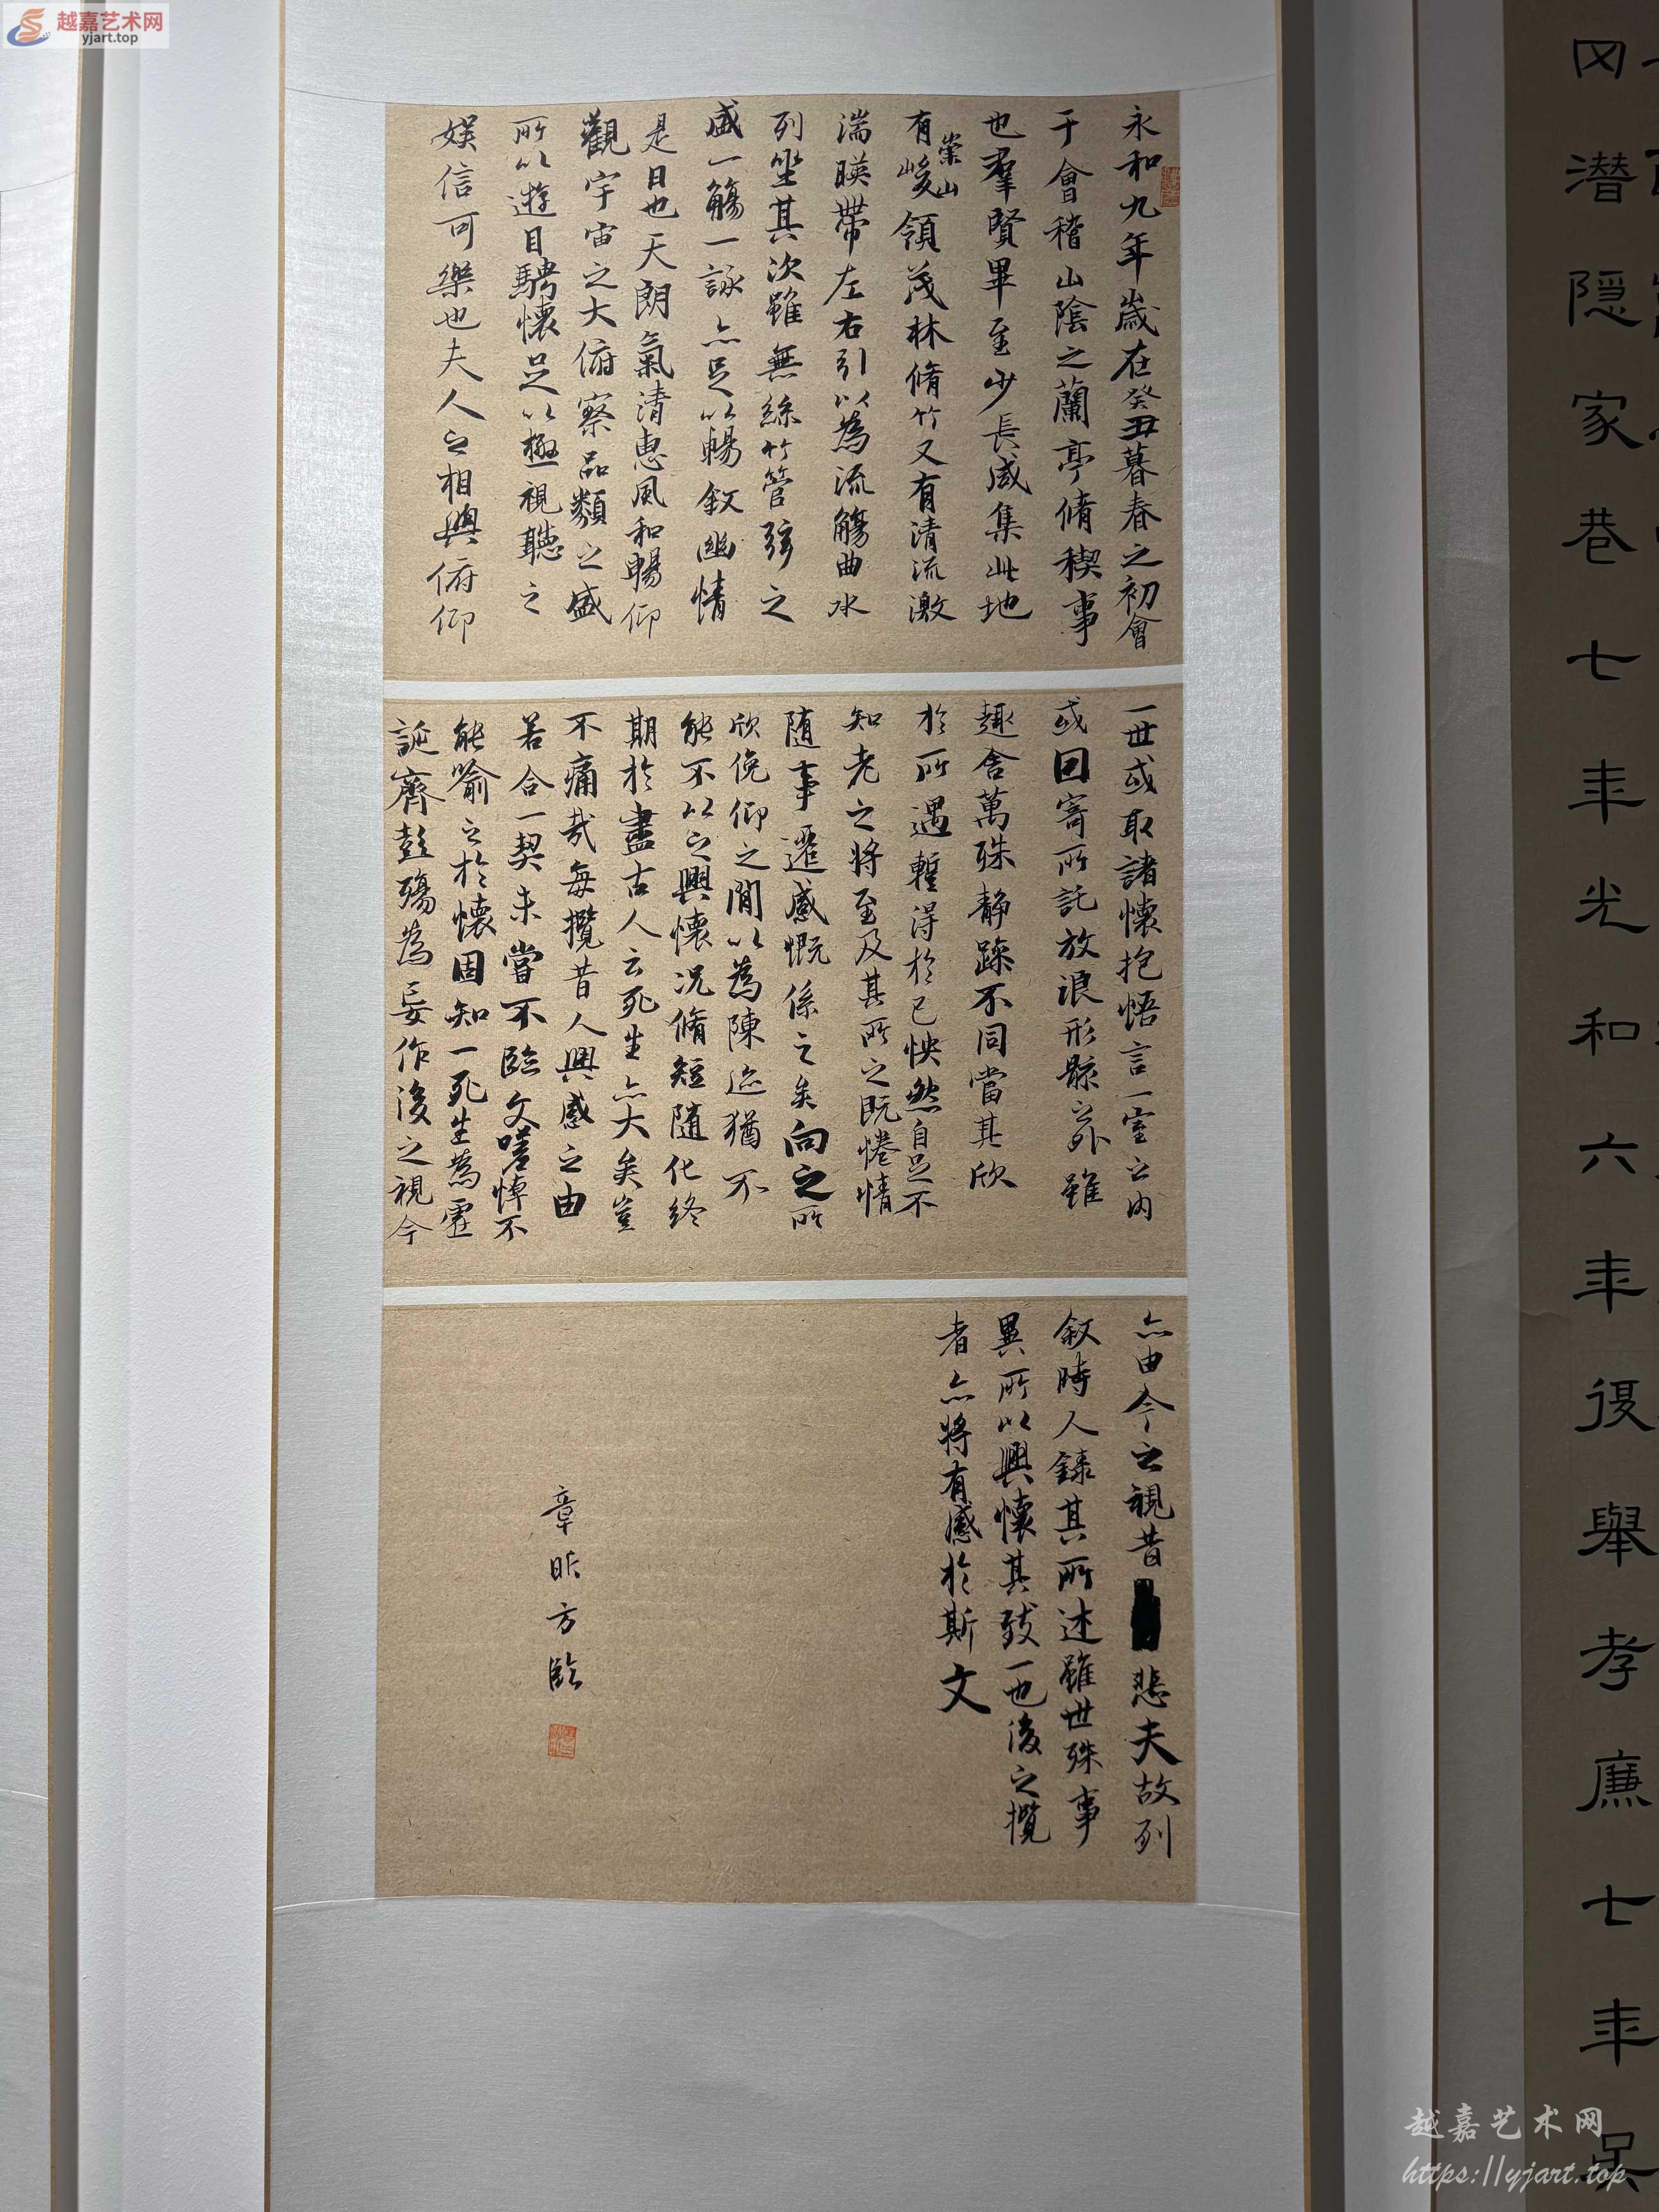 越嘉艺术网
yjart.top
永和九年歲在癸丑暮春之初會
于會稽山陰之蘭亭脩稧事
也羣賢畢至少長咸集此地
有崇山峻領茂林脩竹又有清流激
湍暎帶左右引以為流觴曲水
列坐其次雖無絲竹管弦之
盛一觴一詠亦足以暢敘幽情
是日也天朗氣清惠風和暢仰
觀宇宙之大俯察品類之盛
所以遊目騁懷足以極視聽之
娛信可樂也夫人之相與俯仰
一世或取諸懷抱悟言一室之內
或因寄所託放浪形骸之外雖
趣舍萬殊靜躁不同當其欣
於所遇暫得於己怏然自足不
知老之將至及其所之既惓情
随事遷感慨係之矣向之所
欣俛仰之閒以為陳迹猶不
能不以之興懷況脩短随化終
期於盡古人云死生亦大矣豈
不痛哉每攬昔人興感之由
若合一契未嘗不臨文嗟悼不
能喻之於懷固知一死生為虛
誕齊彭殤為妄作後之視今
亦由今之視昔悲夫故列
敘時人錄其所述雖世殊事
異所以興懷其致一也後之攬
者亦將有感於斯文
章昕方臨
潜隐家巷七年光和六年復舉孝廉七年
越嘉艺术网
https://yjart.top